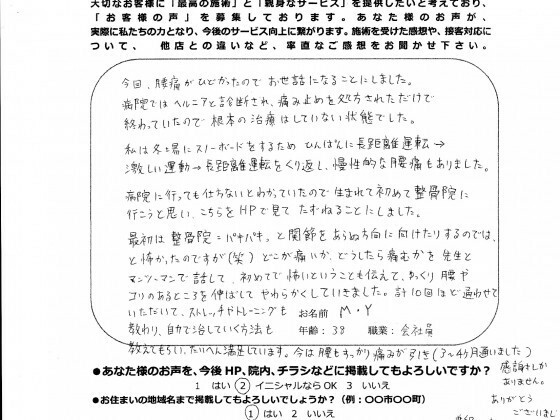 大切なお客様に「最高の施術」と「親身なサービス」を提供したいと考えており、
「お客様の声」を募集しております。あなた様のお声が、
実際に私たちの力となり、今後のサービス向上に繋がります。施術を受けた感想や、接客対応に
ついて、他店との違いなど、率直なご感想をお聞かせ下さい。
今回、腰痛がひどかったのでお世話になることにしました。
病院ではヘルニアと診断され、痛み止めを処方されただけで
終わっていたので根本の治療はしていない状態でした。
私は冬場にスノーボードをするためひんぱんに長距離運転→
激しい運動→長距離運転をくり返し、慢性的な腰痛もありました。
病院に行っても仕方ないとわかっていたので生まれて初めて整骨院に
行こうと思い、こちらをHPで見てたずねることにしました。
最初は整骨院=バキバキッと関節をあらぬ方向に向けたりするのでは、
と怖かったのですが(笑)どこが痛いか、どうしたら痛むかを先生と
マンツーマンで話して、初めてで怖いということも伝えて、ゆっくり腰や
コリのあるところを伸ばしてやわらかくしていきました。計10回ほど通わせて
いただいて、ストレッチやトレーニングも
お名前 M・Y
教わり、自力で治していく方法も
年齢:38 職業:会社員
教えてもらい、たいへん満足しています。今は腰もすっかり痛みが引き(3〜4ヶ月通いました)
感謝しか
ありません。
ありがとう
ございまし
●あなた様のお声を、今後HP、院内、チラシなどに掲載してもよろしいですか?
1 はい ② イニシャルならOK 3 いいえ
●お住まいの地域名まで掲載してもよろしいでしょうか?(例:〇〇市〇〇町)
① はい 2 いいえ